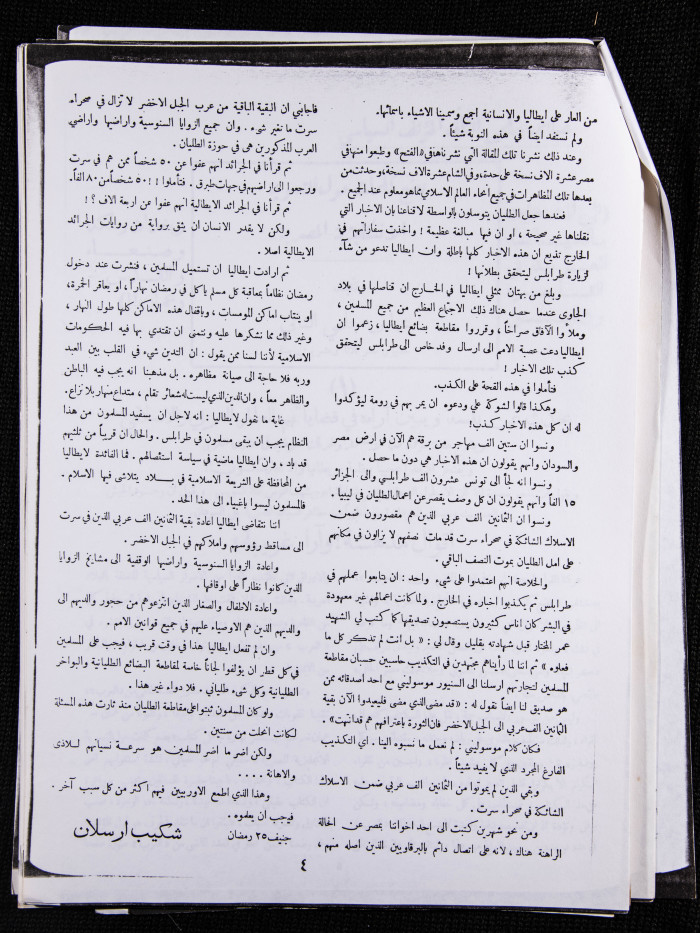 من العار على ايطاليا والانسانية اجمع وسمينا الاشياء باسمائها.
ولم نستفد ايضاً في هذه النوبة شيئاً.
وعند ذلك نشرنا تلك المقالة التي نشرناها في «الفتح» وطبعوا منها في
مصر عشرة الاف نسخة على حدة، وفي الشام عشرة الاف نسخة، وحدثت من
بعدها تلك المظاهرات في جميع أنحاء العالم الاسلامي بما هو معلوم عند الجميع.
فعندها جعل الطليان يتوسلون بالواسطة لاقناعنا بان الاخبار التي
نقلناها غير صحيحة، او ان فيها مبالغة عظيمة! واخذت سفاراتهم في
الخارج تذيع ان هذه الاخبار كلها باطلة وان ايطاليا تدعو من شآء
لزيارة طرابلس ليتحقق بطلانها!
وبلغ من بهتان ممثلي ايطاليا في الخارج ان قناصلها في بلاد
الجاوى عندما حصل هناك ذلك الاجتماع العظيم من جميع المسلمين،
وملأوا الآفاق صراخاً، وقرروا مقاطعة بضائع ايطاليا، زعموا ان
ايطاليا دعت عصبة الامم الى ارسال وفد خاص الى طرابلس ليتحقق
كذب تلك الاخبار!
فتأملوا في هذه القحة على الكذب.
وهكذا قالوا لشوكة علي ودعوه ان يمر بهم في رومة ليؤكدوا
له ان كل هذه الاخبار كذب!
ونسوا ان ستين الف مهاجر من برقة هم الآن في ارض مصر
والسودان وانهم يقولون ان هذه الاخبار هي دون ما حصل.
ونسوا انه لجأ الى تونس عشرون الف طرابلسي والى الجزائر
١٥ الفاً وانهم يقولون ان كل وصف يقصر عن اعمال الطليان في ليبيا.
ونسوا ان الثمانين الف عربي الذين هم مقصورون ضمن
الاسلاك الشائكة في صحراء سرت قد مات نصفهم لا يزالون في مكانهم
على امل الطليان بموت النصف الباقي.
والخلاصة انهم اعتمدوا على شيء واحد: ان يتابعوا عملهم في
طرابلس ثم يكذبوا اخباره في الخارج. ولما كانت اعمالهم غير معهودة
في البشر كان اناس كثيرون يستصعبون تصديقها كما كتب لي الشهيد
عمر المختار قبل شهادته بقليل وقال لي: «بل انت لم تذكر كل ما
فعلوه» ثم اننا لما رأيناهم مجتهدين في التكذيب حاسبين حسبان مقاطعة
المسلمين لتجارتهم ارسلنا الى السنيور موسوليني مع احد اصدقائه ممن
هو صديق لنا ايضاً نقول له: «قد مضى الذي مضى فليعيدوا الآن بقية
الثمانين الف عربي الى الجبل الاخضر فان الثورة باعترافهم هم قد انتهت».
فكان كلام موسوليني: لم نعمل ما نسبوه الينا. أي التكذيب
الفارغ المجرد الذي لا يفيد شيئاً.
وبقي الذين لم يموتوا من الثمانين الف عربي ضمن الاسلاك
الشائكة في صحراء سرت.
ومن نحو شهرين كتبت الى احد اخواننا بمصر عن الحالة
الراهنة هناك، لانه على اتصال دائم بالبرقاويين الذين اصله منهم،
فاجابني ان البقية الباقية من عرب الجبل الاخضر لا تزال في صحراء
سرت ما تغير شيء. وان جميع الزوايا السنوسية واراضيها واراضي
العرب المذكورين هي في حوزة الطليان.
ثم قرأنا في الجرائد انهم عفوا عن ٥٠ شخصاً ممن هم في سرت
ورجعوا الى اراضيهم في جهات طبرق. فتأملوا!! ٥٠ شخصاً من ٨٠ الفاً.
ثم قرأنا في الجرائد الايطالية انهم عفوا عن اربعة الاف؟!
ولكن لا يقدر الانسان ان يثق برواية من روايات الجرائد
الايطالية اصلا.
ثم ارادت ايطاليا ان تستميل المسلمين، فنشرت عند دخول
رمضان نظاماً بمعاقبة كل مسلم يأكل في رمضان نهاراً، او يعاقر الخمرة،
او ينتاب اماكن المومسات، وباقفال هذه الاماكن كلها طول النهار،
وغير ذلك مما نشكرها عليه ونتمنى ان تقتدي بها فيه الحكومات
الاسلامية لأننا لسنا ممن يقول: ان التدين شيء في القلب بين العبد
وربه فلا حاجة الى صيانة مظاهره. بل مذهبنا انه يجب فيه الباطن
والظاهر معاً، وان الدين الذي ليست له شعائر تقام، متداع منهار بلا نزاع.
غاية ما نقول لايطاليا: انه لاجل ان يستفيد المسلمون من هذا
النظام يجب ان يبقى مسلمون في طرابلس. والحال ان قريباً من ثلثيهم
قد باد، وان ايطاليا ماضية في سياسة استئصالهم. فما الفائدة لايطاليا
من المحافظة على الشريعة الاسلامية في بلاد يتلاشى فيها الاسلام.
فالمسلمون ليسوا باغبياء الى هذا الحد.
اننا نتقاضى ايطاليا اعادة بقية الثمانين الف عربي الذين في سرت
الى مساقط رؤوسهم واملاكهم في الجبل الاخضر.
واعادة الزوايا السنوسية واراضيها الوقفية الى مشايخ الزوايا
الذين كانوا نظاراً على اوقافها.
واعادة الاطفال والصغار الذين انتزعوهم من حجور والديهم الى
والديهم الذين هم الاوصياء عليهم في جميع قوانين الامم.
وان لم تفعل ايطاليا هذا في وقت قريب، فيجب على المسلمين
في كل قطر ان يؤلفوا لجاناً خاصة لمقاطعة البضائع الطليانية والبواخر
الطليانية وكل شيء طلياني. فلا دواء غير هذا.
ولو كان المسلمون ثبتوا على مقاطعة الطليان منذ ثارت هذه المسئلة
لكانت انحلت من سنتين.
ولكن اضر ما اضر المسلمين هو سرعة نسيانهم للاذى
والاهانة ....
وهذا الذي اطمع الاوربيين فيهم اكثر من كل سبب آخر.
فيجب ان يعلموه.
جنيف ٢٥ رمضان
شكيب ارسلان
٤